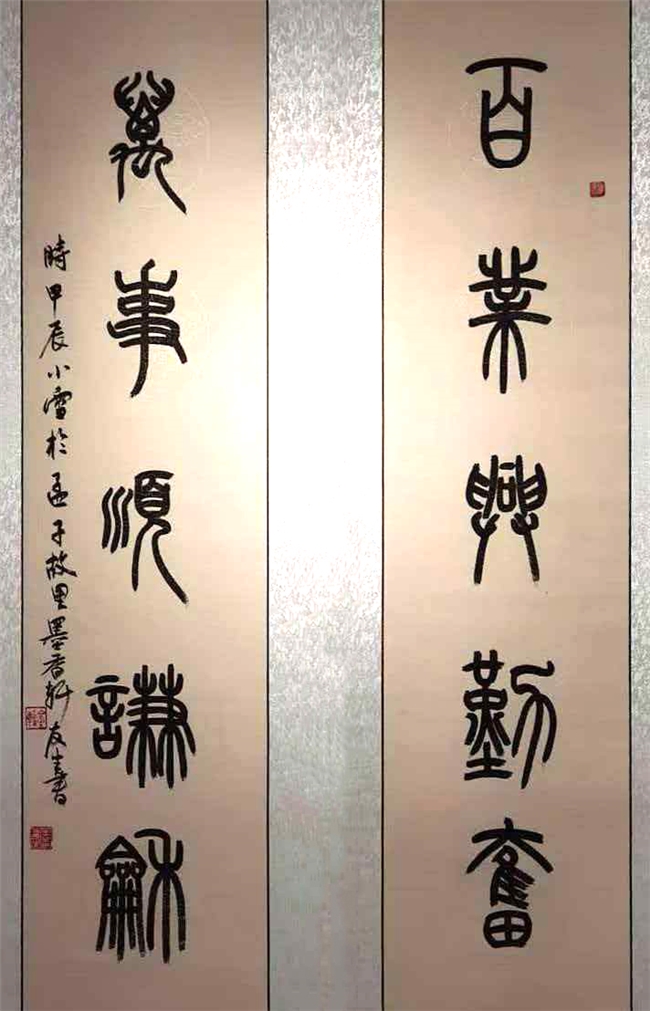 百業興勤奮
萬事順謙龢
時甲辰小雪於孟子故里墨香軒友書